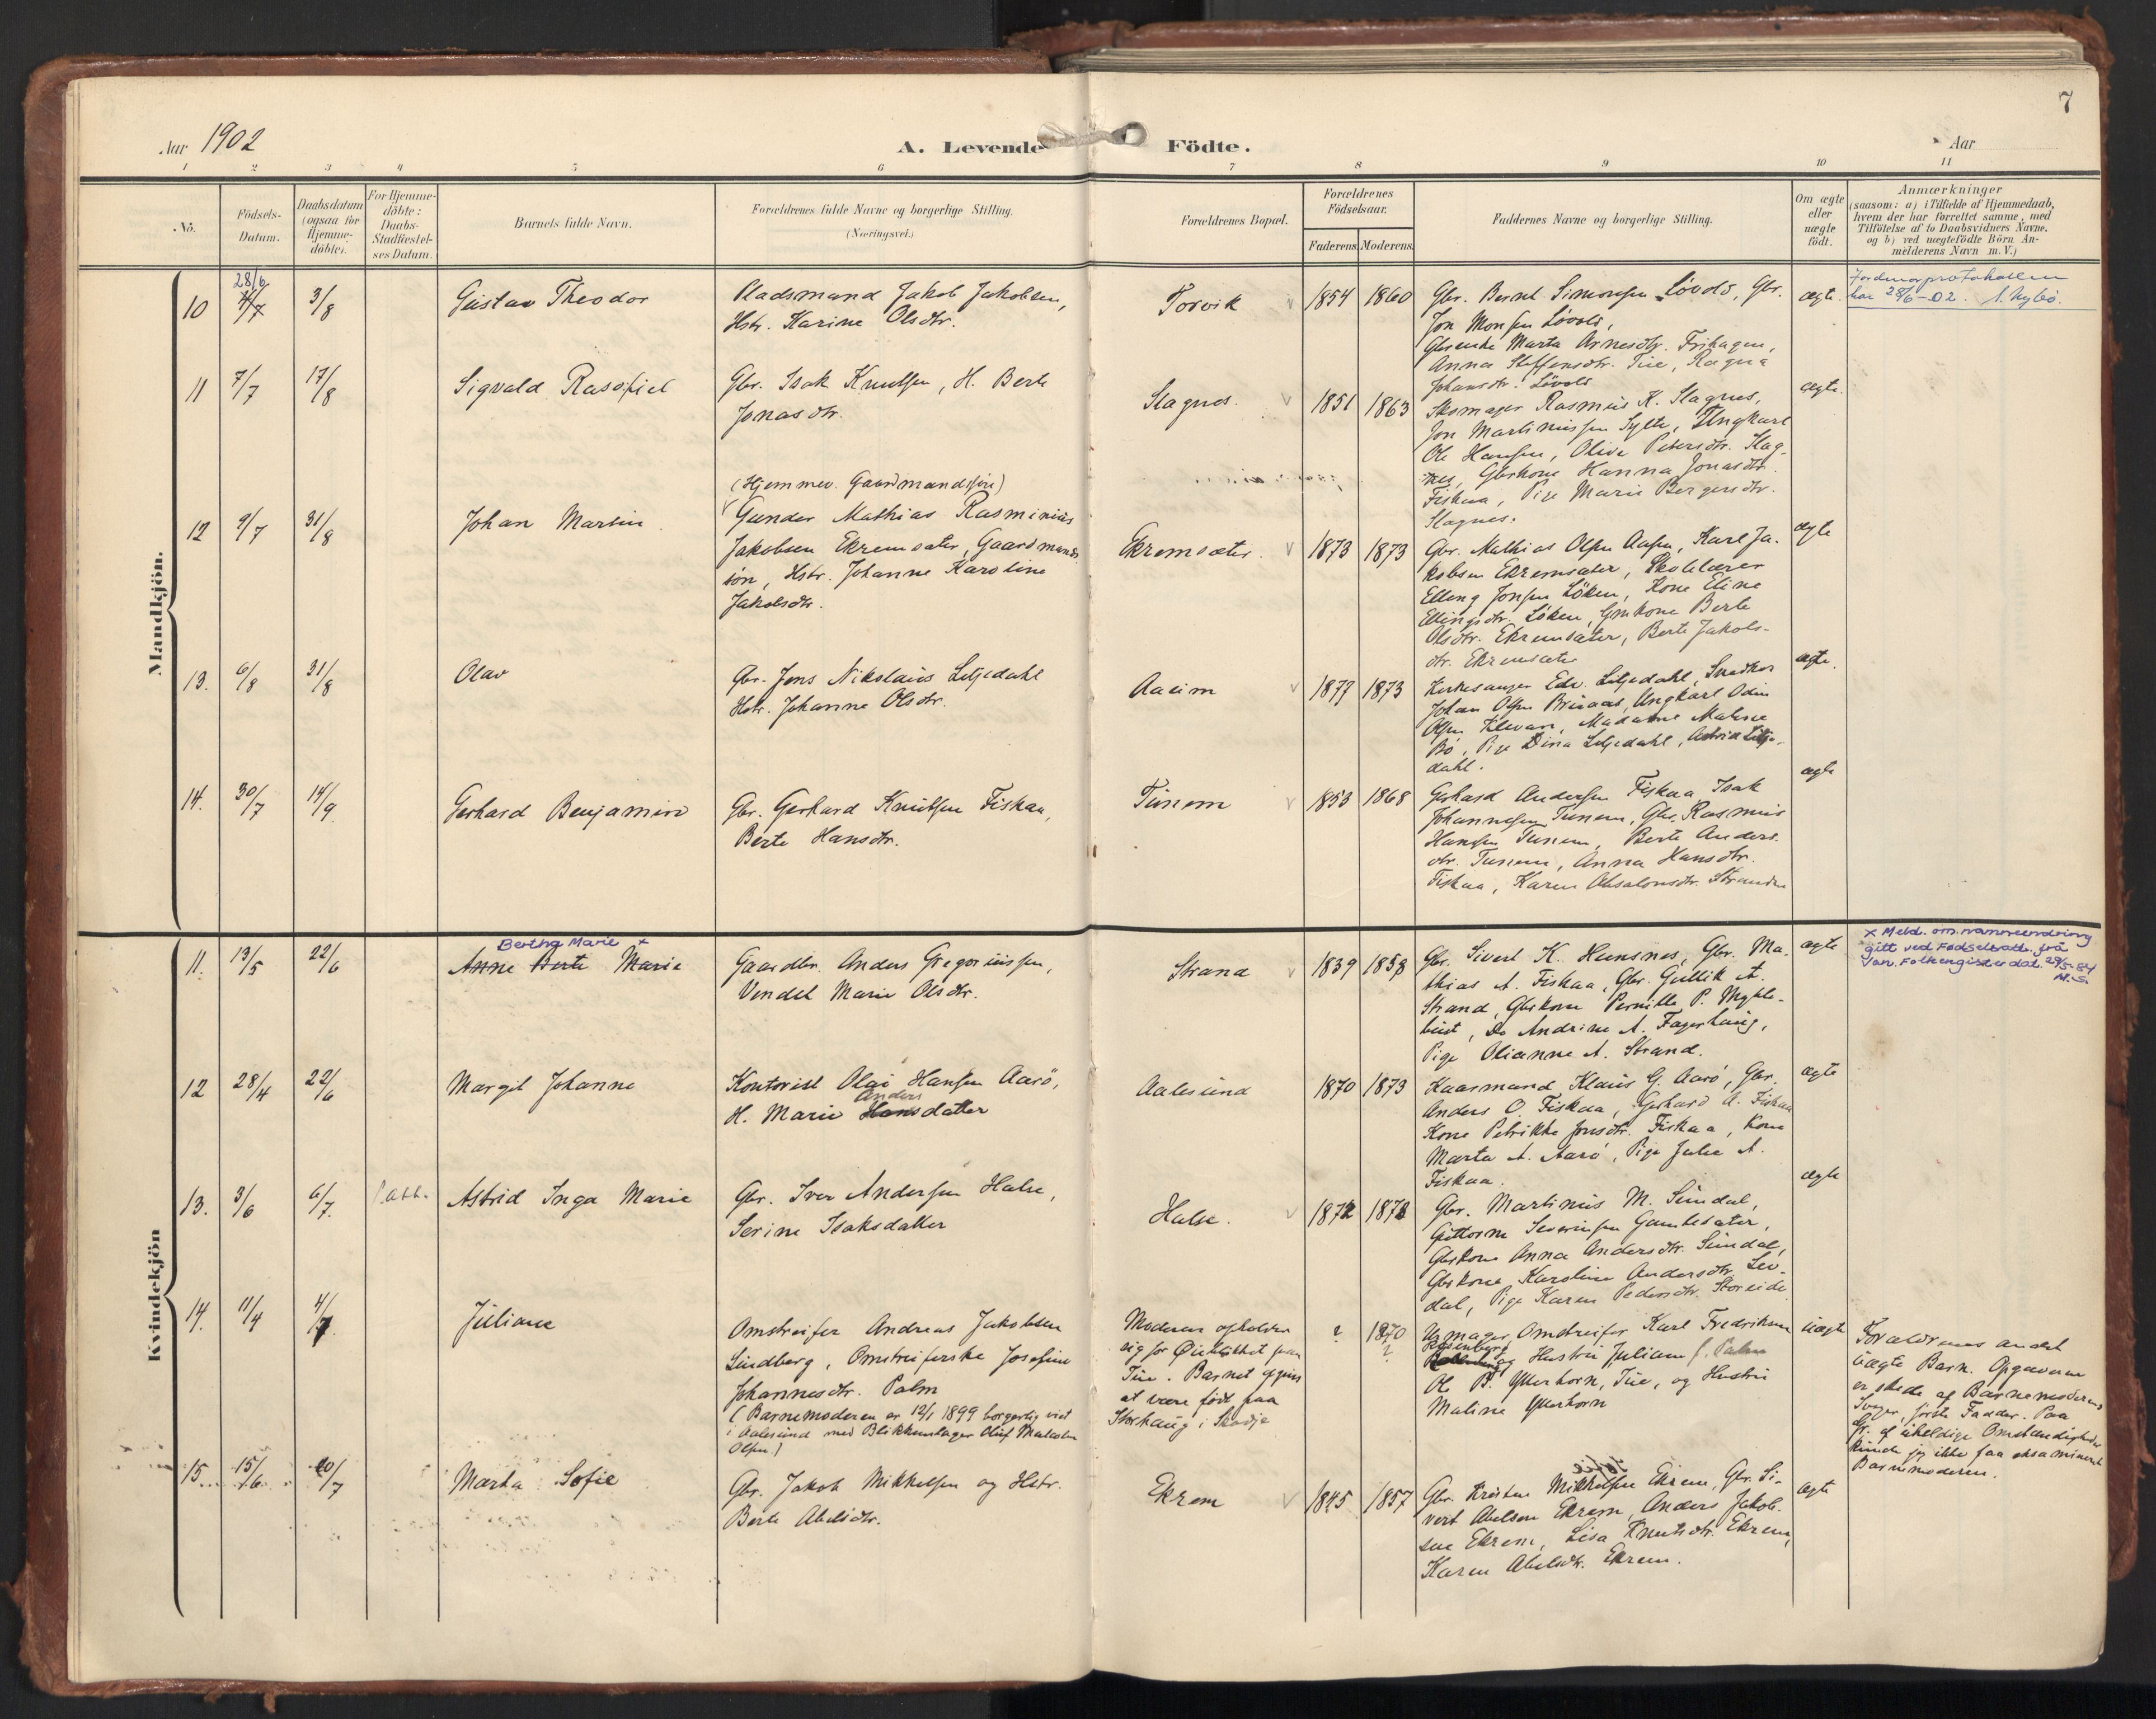 7
Aar 1902
A. Levende Födte.
Aar
1 2 3 4 5 6 7 8 9 10 11
No.
Födsels-
Datum.
Daabsdatum
(ogsaa for
Hjemme-
döbte).
For Hjemme-
döbte:
Daabs-
Stadfæstel-
ses Datum.
Barnets fulde Navn.
Forældrenes fulde Navne og borgerlige Stilling.
(Næringsvei.)
Forældrenes Bopæl.
Forældrenes
Födselsaar.
Faderens. Moderens.
Faddernes Navne og borgerlige Stilling.
Om ægte
eller
uægte
födt.
Anmærkninger
(saasom: a) i Tilfælde af Hjemmedaab,
hvem der har forrettet samme, med
Tilföielse af to Daabsvidners Navne.
og b) ved uægtefödte Börn An-
melderens Navn m.V.)
Mandkjön.
10
28/6
4/7
3/8
Gustav Theodor
Pladsmand Jakob Jakobsen,
Hstr. Karine Olsdtr.
Torvik
1854 1860
Gbr. Bernt Simonsen Lövold, Gbr.
Jon Monsen Lövold,
Gbrenke Marta Arnesdtr. Frihagen,
Anna Steffensdtr. Tue, Ragna
Johansdtr. Lövold
ægte.
Jordmorprotokollen
har 28/6-02.
11
7/7
17/8
Sigvald Rasofiel
Gbr. Isak Knutsen, H. Berte
Jonasdtr.
Slagnes.
1851 1863
Skomager Rasmus K. Slagnes,
Jon Martinussen Sylte, Ungkarl
Ole Hansen, Olive Petersdtr. Slag-
nes, Gbrkone Hanna Jonasdtr.
Fiskaa, Pige Marie Bergersdtr.
Slagnes.
ægte.
12
9/7
31/8
Johan Martin
(Hjemmev. Gaardmandssön)
Gunder Mathias Rasminius
Jakobsen Ekremsæter, Gaardmands
sön, Hstr. Johanne Karoline
Jakobsdtr.
Ekremsæter.
1873 1873
Gbr. Mathias Olsen Aasen, Karl Ja-
kobsen Ekremsæter, Skolelærer
Elling Jonsen Löken, Kone Eline
Ellingsdtr. Löken, Gmkone Berte
Olsdtr. Ekremsæter, Berte Jakobs-
dtr. Ekremsæter
ægte
13.
6/8
31/8
Olav
Gbr. Jens Nikolaus Liljedahl
Hstr. Johanne Olsdtr.
Aaeim
1877 1873
Kirkesanger Edv. Liljedahl, Snedker
Johan Olsen Bruaas, Ungkarl Odin
Olsen Klevan, Madame Maline
Bö, Pige Dina Liljedahl, Astrid Lilje-
dahl.
ægte.
14.
30/7
14/9
Gerhard Benjamin
Gbr. Gerhard Knutsen Fiskaa,
Berte Hansdtr.
Tunem
1853 1868
Gerhard Andersen Fiskaa Isak
Johannesen Tunem, Gbr. Rasmus
Hansen Tunem, Berte Anders-
dtr. Tunem, Anna Hansdtr.
Fiskaa, Karen Absalonsdtr. Stranden
ægte
Kvindekjön
11.
13/5
22/6
Bertha Marie x
Anne Berte Marie
Gaardbr. Anders Gregoriussen,
Vendel Marie Olsdtr.
Strand
1839 1858
Gbr. Sivert K. Hunsnes, Gbr. Ma-
thias A. Fiskaa, Gbr. Gullik A.
Strand, Gbrkone Pernille P. Mykle-
bust, Do Andrine A. Fagerhaug,
Pige Olianne A. Strand.
ægte
x Meld. om navneendring
gitt ved Fødselsatt. frå
Van. Folkeregister dat. 28/5-84
12
28/4
22/6
Margit Johanne
Kontorist Olai Hansen Aarö,
Anders
H. Marie Hansdatter
Aalesund
1870 1873
Kaarmand Klaus G. Aarö, Gbr.
Anders O. Fiskaa, Gerhard A. Fiskaa
Kone Petrikke Jonsdtr. Fiskaa, Kone
Marta A. Aarö, Pige Julie A.
Fiskaa.
ægte
13.
3/6
6/7.
Astrid Inga Marie
Gbr. Iver Andersen Halse,
Serine Isaksdatter
Halse.
1872 1878
Gbr. Martinus M. Sundal,
Guttorm Severinsen Gamlesæter,
Gbrkone Anna Andersdtr. Sundal,
Gbrkone Karoline Andersdtr. Sev-
dal, Pige Karen Pedersdtr. Storeide
ægte
14.
11/4
4/7
Juliane
Omstreifer Andreas Jakobsen
Lindberg, Omstreiferske Josefine
Johannesdtr. Palm
(Barnemoderen er 12/1 1899 borgerlig viet
i Aalesund med Blikkenslager Oluf Malcolm
Olsen.)
Moderen opholder
sig for Öieblikket paa
Tue. Barnet opgives
at være födt paa
Storhaug i Skodje
? 1870
?
Urmager, Omstreifer Karl Fredriksen
Rosenberg
og Hustru Juliane f. Palm
Ole B. Ytterhorn, Tue, og Hustru
Maline Ytterhorn
uægte
Forældrenes andet
uægte Barn. Opgaverne
er skede af Barnemoderens
Svoger, förste Fadder. Paa
Gr. af uheldige Omstændigheder
kunde jeg ikke faa eksamineret
Barnemoderen.
15.
15/6
20/7
Marta Sofie
Gbr. Jakob Mikkelsen og Hstr.
Berte Abelsdtr.
Ekrem
1845 1857
Gbr. Kristen Mikkelsen Ekrem, Gbr. Si-
vert Abelsen Ekrem, Anders Jakob-
sen Ekrem, Lisa Knutsdtr. Ekrem,
Karen Abelsdtr. Ekrem.
ægte